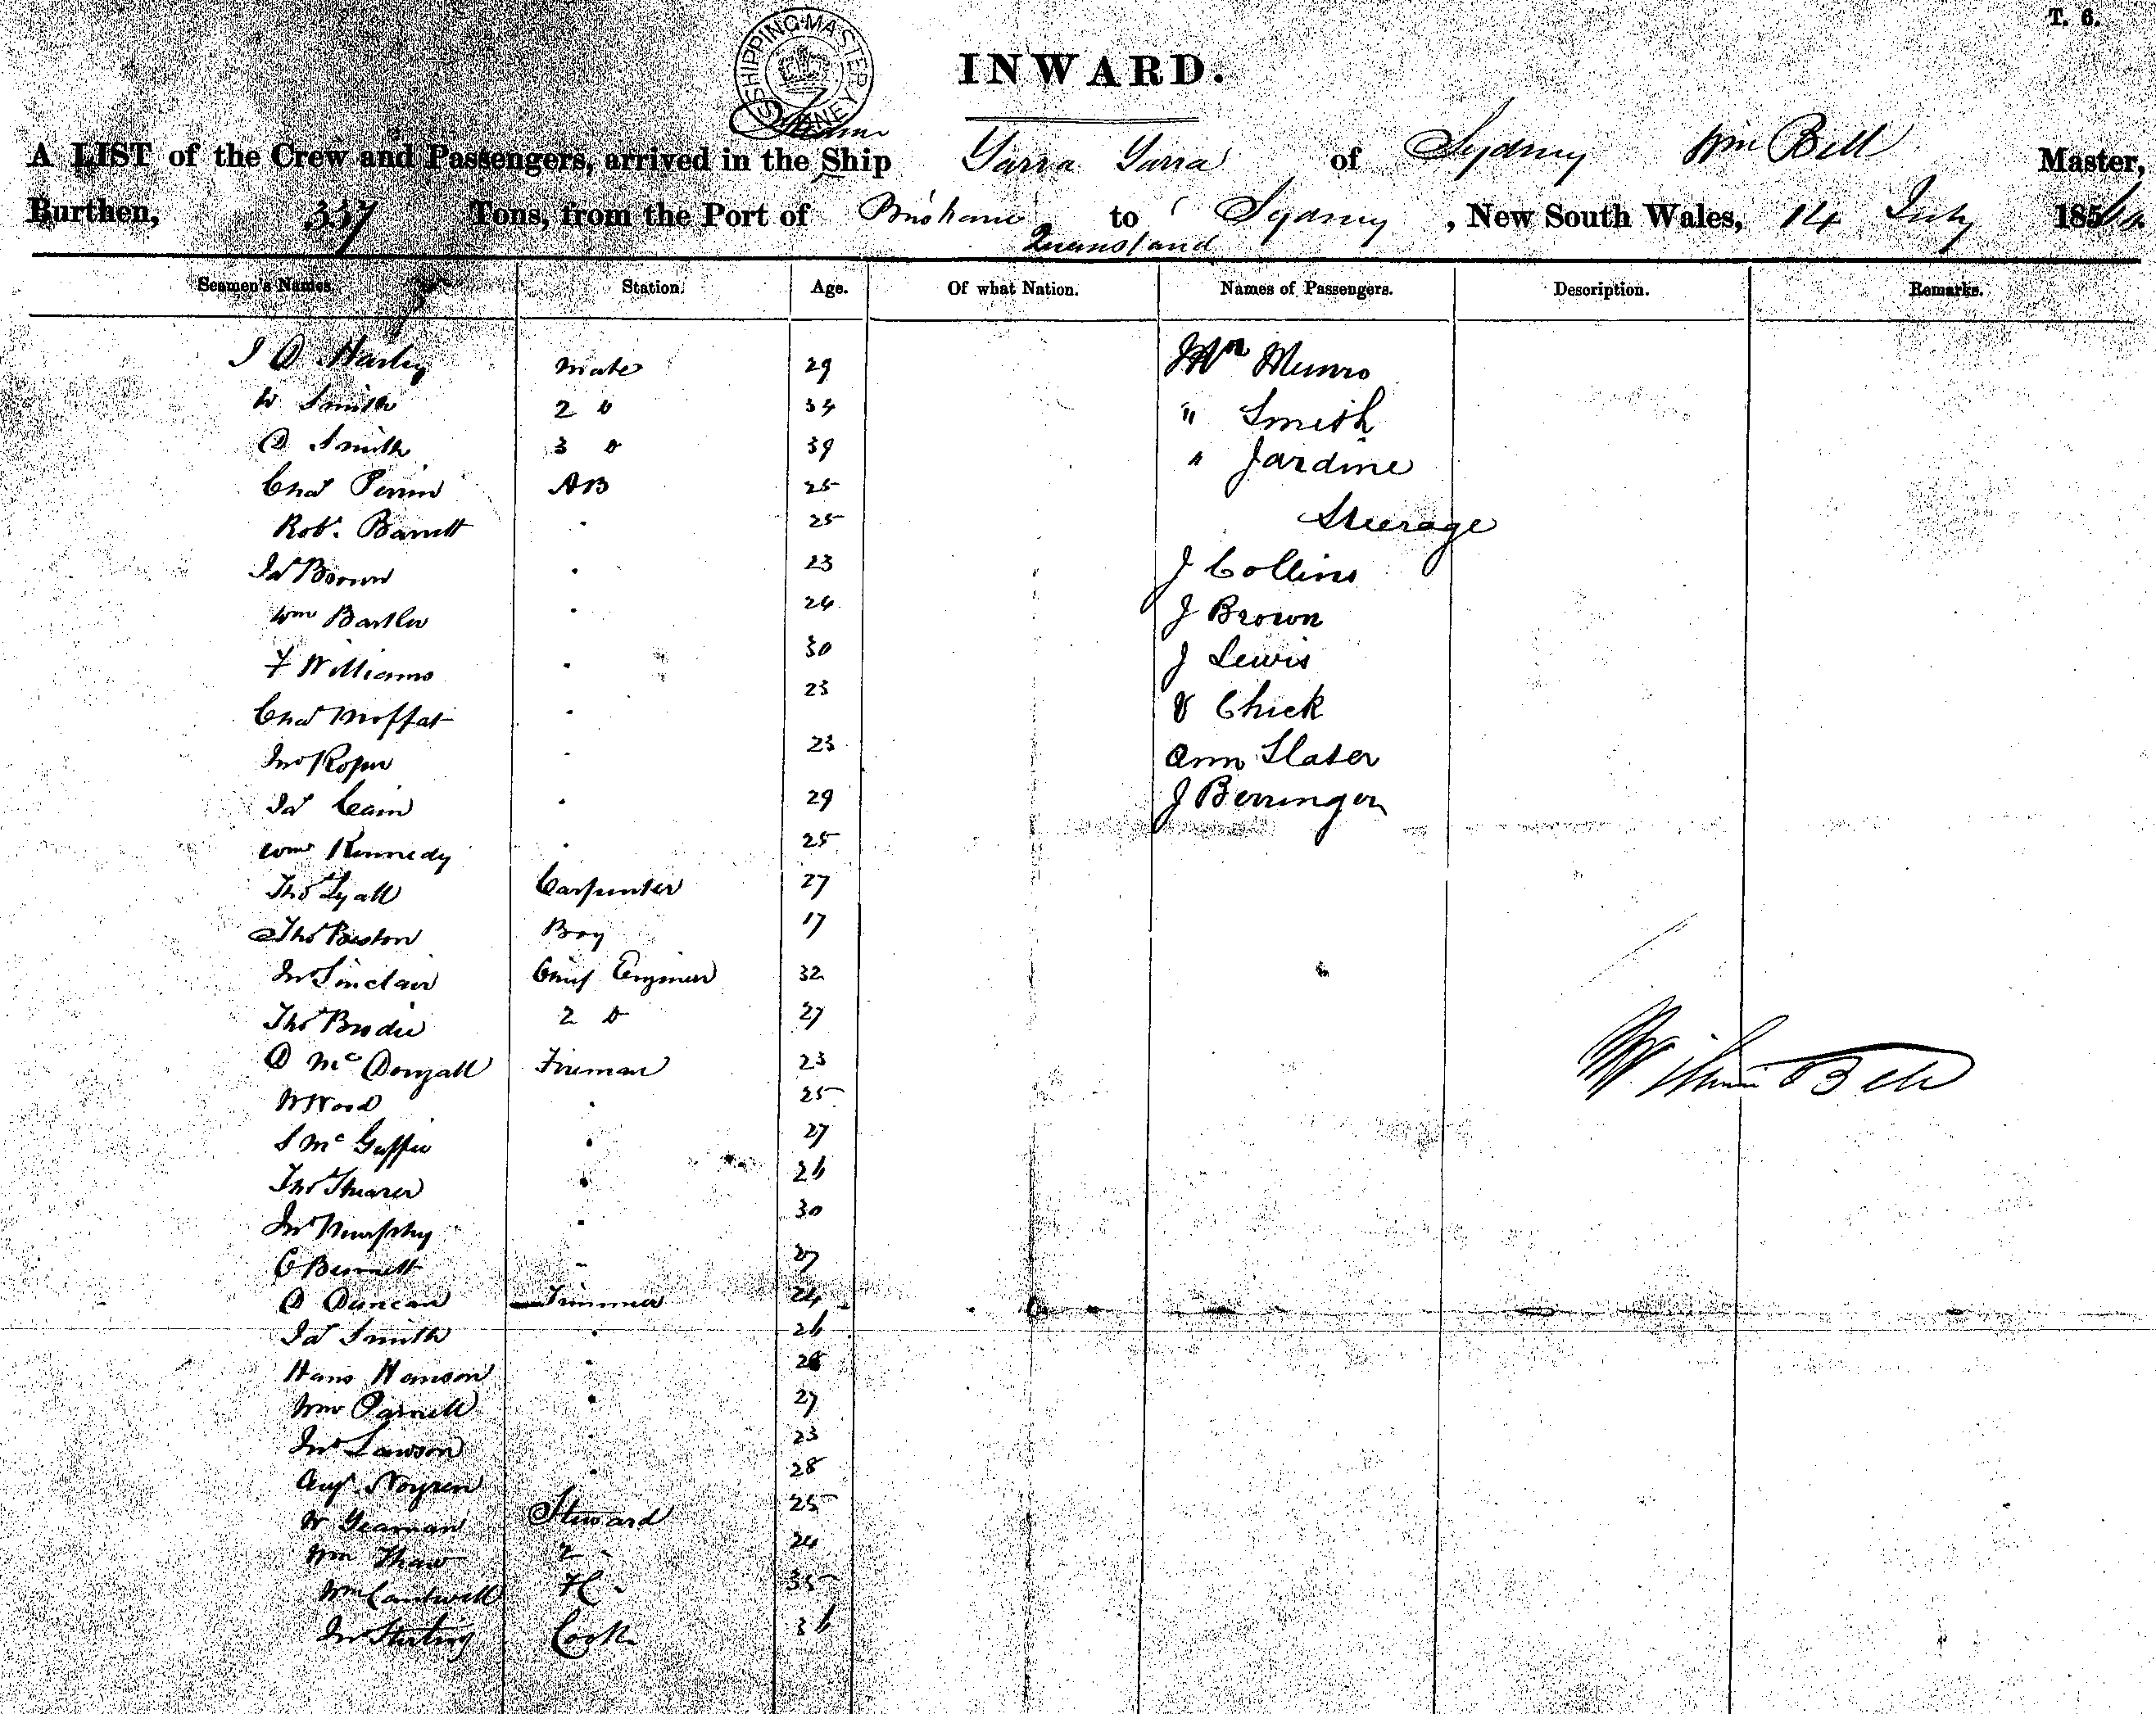 T. 6.
SHIPPING MASTER SYDNEY
INWARD.
Steam
A LIST of the Crew and Passengers, arrived in the Ship Yarra Yarra of Sydney Wm Bell Master,
Burthen, 337 Tons, from the Port of Brisbane to Sydney, New South Wales, 14 July 185
Queensland
Seamen's Names. Station. Age. Of what Nation. Names of Passengers. Description. Remarks.
J D Harley mate 29 Mr Munro
W Smith 2 Do 34 " Smith
D Smith 3 Do 39 " Jardine
Chas Perrin AB 25 Steerage
Robt. Barrett . 25
Jas Brown . 23 J Collins
Wm Bartler . 24 J Brown
F Williams . 30 J Lewis
Chas Moffat . 23 Chick
Jno Roper . 23 Ann Slater
Jas Cain . 29 J Berringer
Wm Kennedy . 25
Thos Lyall Carpenter 27
Thos Beston Boy 17
Jno Sinclair Chief Engineer 32
Thos Brodie 2 Do 27
D McDougall Fireman 23 William Bell
W Wood . 25
S McGuffie . 27
Thos Shearer . 26
Jno Murphy . 30
C Bennett " 27
D Duncan Trimmer 24
Jas Smith . 26
Hans Hanson . 28
Wm Parnell . 27
Jno Lawson . 23
Augt Noyren . 28
W Yeaman Steward 25
Wm Thaw 2 " 24
Wm Cantwell 35
Jno Sterling Cook 36